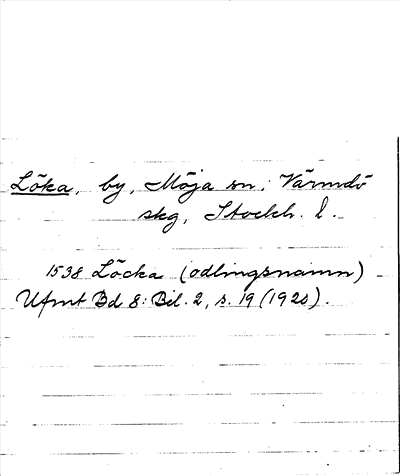 Löka, by, Möja sn, Värmdö
skg, Stockh. l.
1538 Löcka (odlingsnamn)
Ufmt Bd 8: Bil. 2, s. 19 (1920).